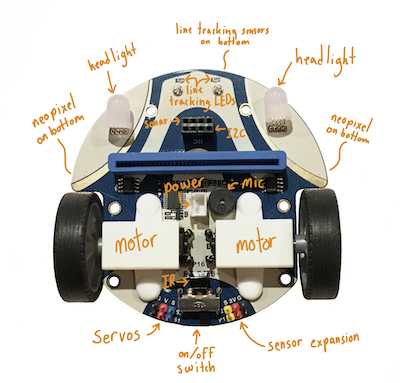 line tracking sensors
on bottom
headlight
headlight
line
tracking LEDs
neopixel
on bottom
neopixel
on bottom
Sonar
I2C
power
Mic
motor
motor
IR
P16
Servos
on/off
switch
sensor expansion